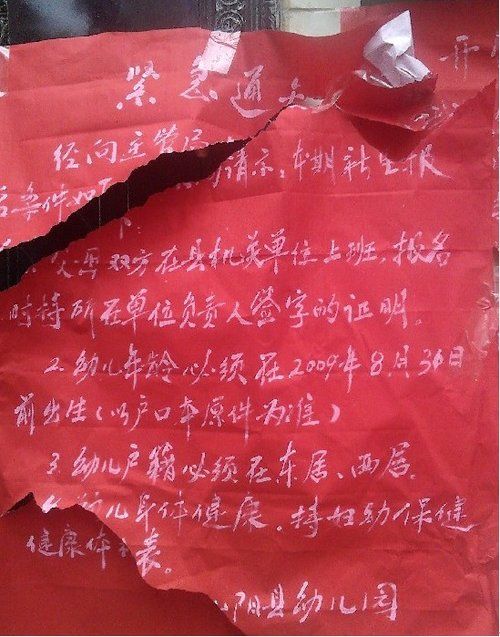 紧急通
经向主管局 请示，本期新生报
名条件如下
父母双方在县机关单位上班，报名
时持所在单位负责人签字的证明。
2. 幼儿年龄必须在2009年8月30日
前出生（以户口本原件为准）
3. 幼儿户籍必须在东居、西居。
幼儿身体健康，持妇幼保健
健康体 表。
阳县幼儿园